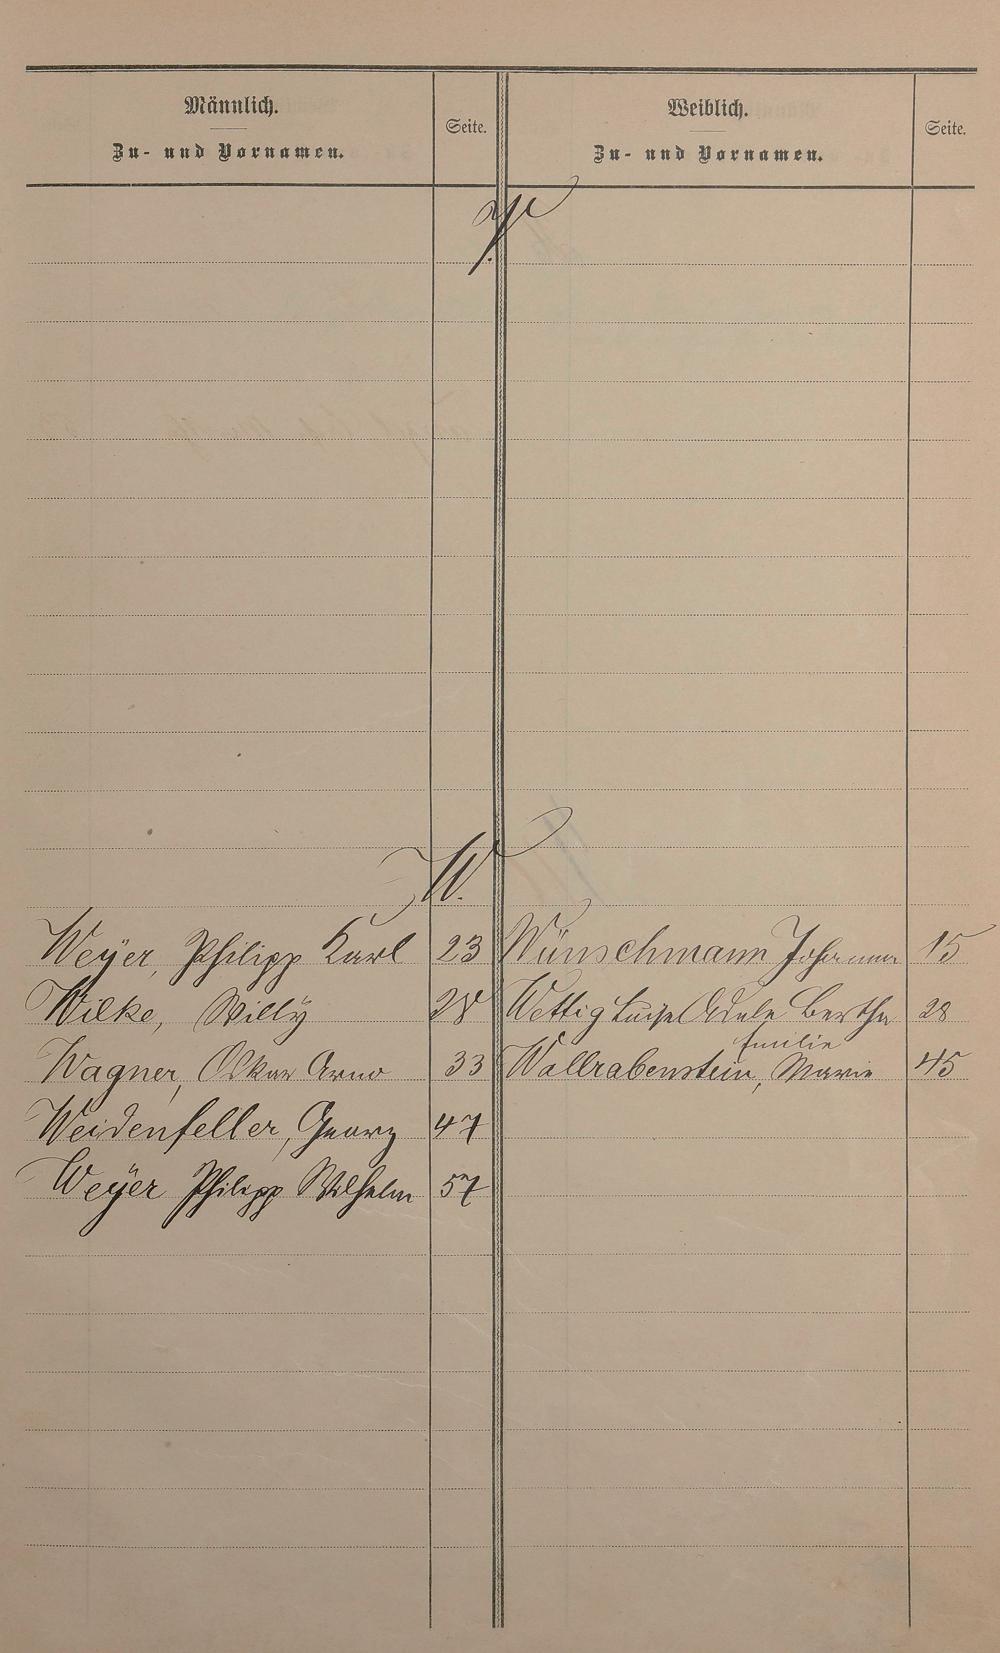 Männlich.
Zu- und Vornamen.
Seite.
Weiblich.
Zu- und Vornamen.
Seite.
V.
W.
Weÿer, Philipp Karl 23
Wilke, Willÿ 28
Wagner, Oskar Arno 33
Weidenfeller, Georg 47
Weÿer Philipp Wilhelm 57
Wünschmann Johanna 15
Wettig Luise Adele Bertha 28
Emilie
Wallrabenstein, Marie 45